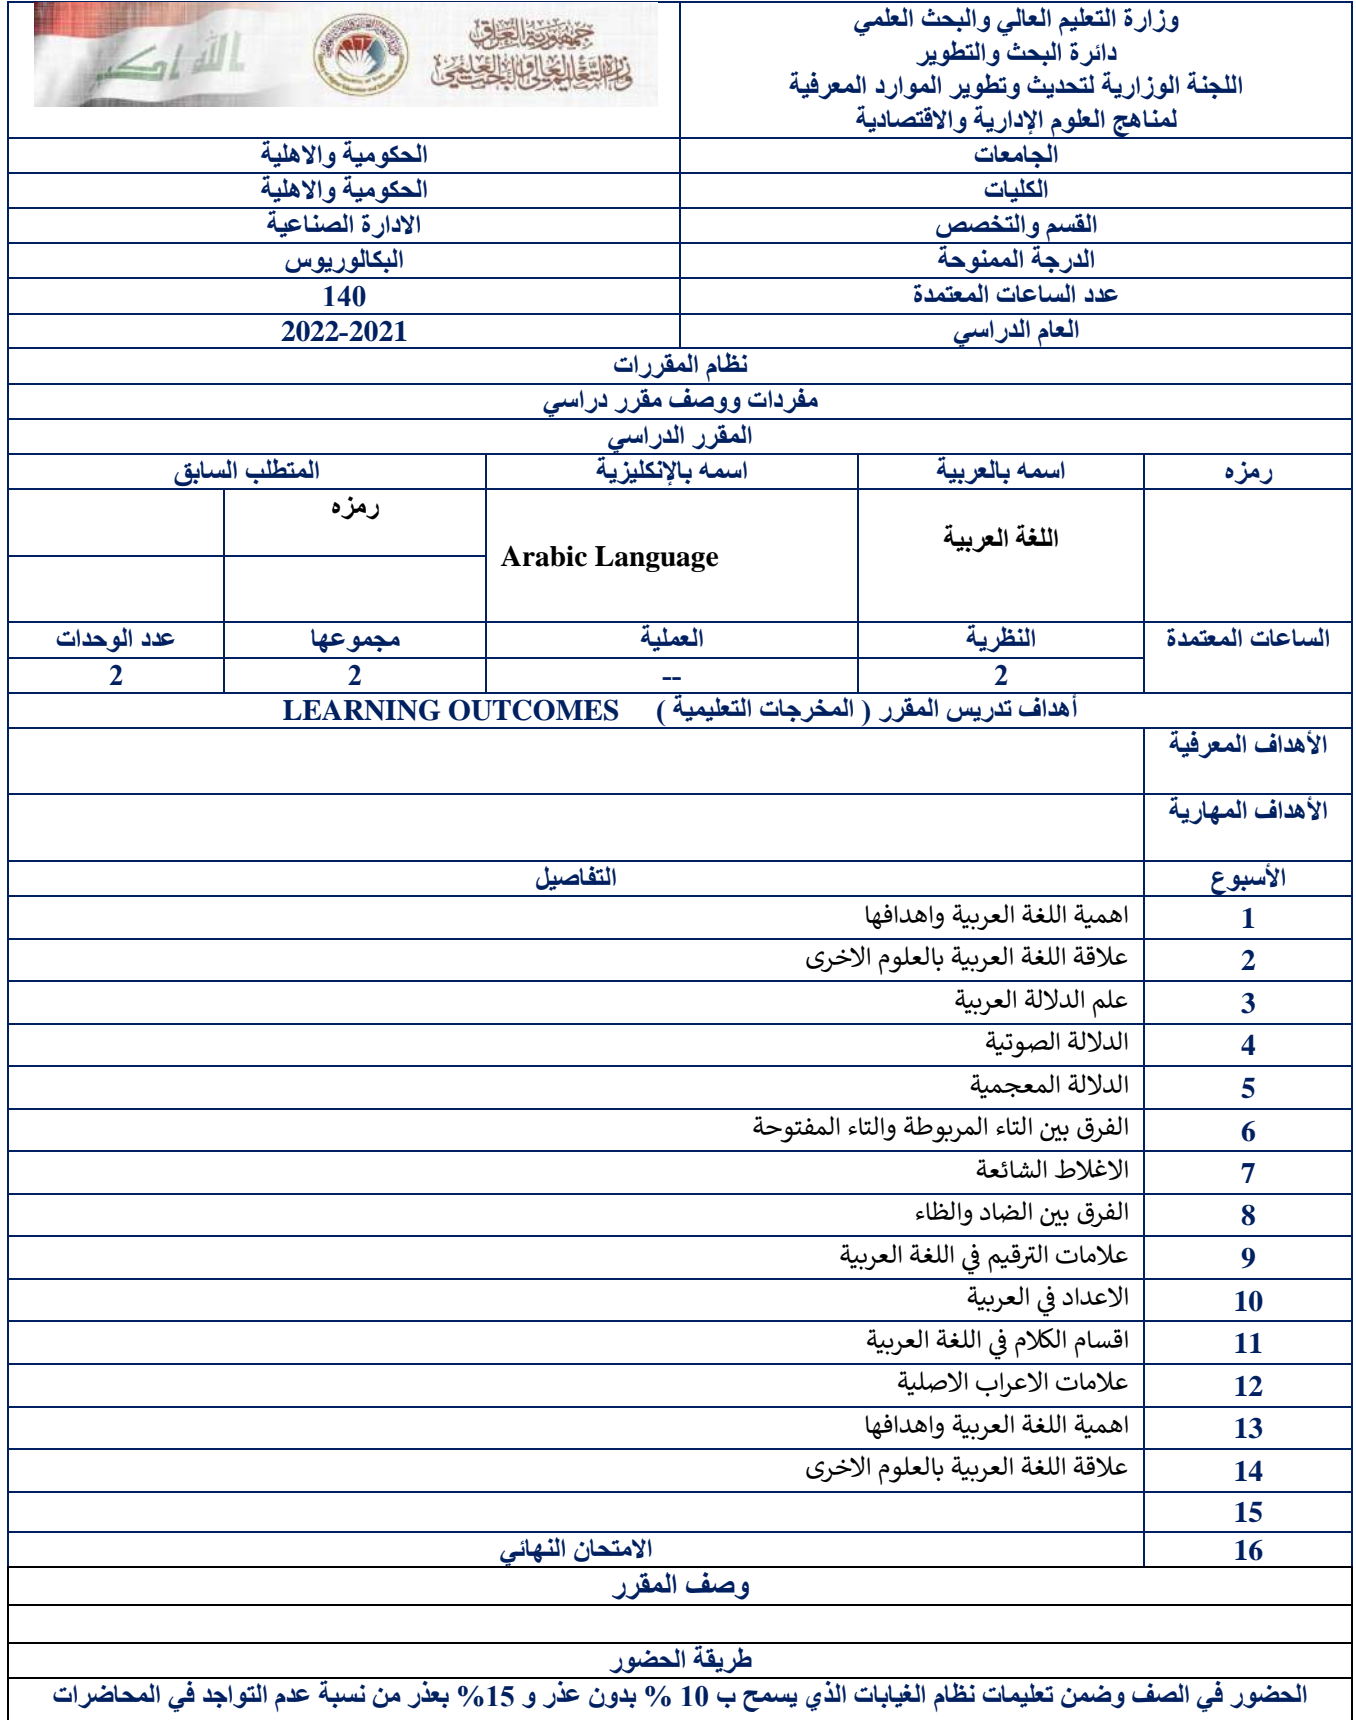 وزارة التعليم العالي والبحث العلمي
دائرة البحث والتطوير
اللجنة الوزارية لتحديث وتطوير الموارد المعرفية
لمناهج العلوم الإدارية والاقتصادية
الله اكبر
جمهورية العراق
وزارة التعليم العالي والبحث العلمي
الجامعات الحكومية والاهلية
الكليات الحكومية والاهلية
القسم والتخصص الادارة الصناعية
الدرجة الممنوحة البكالوريوس
عدد الساعات المعتمدة 140
العام الدراسي 2021-2022
نظام المقررات
مفردات ووصف مقرر دراسي
المقرر الدراسي
رمزه اسمه بالعربية اسمه بالإنكليزية المتطلب السابق
رمزه
اللغة العربية Arabic Language
الساعات المعتمدة النظرية العملية مجموعها عدد الوحدات
2 -- 2 2
أهداف تدريس المقرر ( المخرجات التعليمية ) LEARNING OUTCOMES
الأهداف المعرفية
الأهداف المهارية
الأسبوع التفاصيل
1 اهمية اللغة العربية واهدافها
2 علاقة اللغة العربية بالعلوم الاخرى
3 علم الدلالة العربية
4 الدلالة الصوتية
5 الدلالة المعجمية
6 الفرق بين التاء المربوطة والتاء المفتوحة
7 الاغلاط الشائعة
8 الفرق بين الضاد والظاء
9 علامات الترقيم في اللغة العربية
10 الاعداد في العربية
11 اقسام الكلام في اللغة العربية
12 علامات الاعراب الاصلية
13 اهمية اللغة العربية واهدافها
14 علاقة اللغة العربية بالعلوم الاخرى
15
16 الامتحان النهائي
وصف المقرر
طريقة الحضور
الحضور في الصف وضمن تعليمات نظام الغيابات الذي يسمح ب 10 % بدون عذر و 15% بعذر من نسبة عدم التواجد في المحاضرات